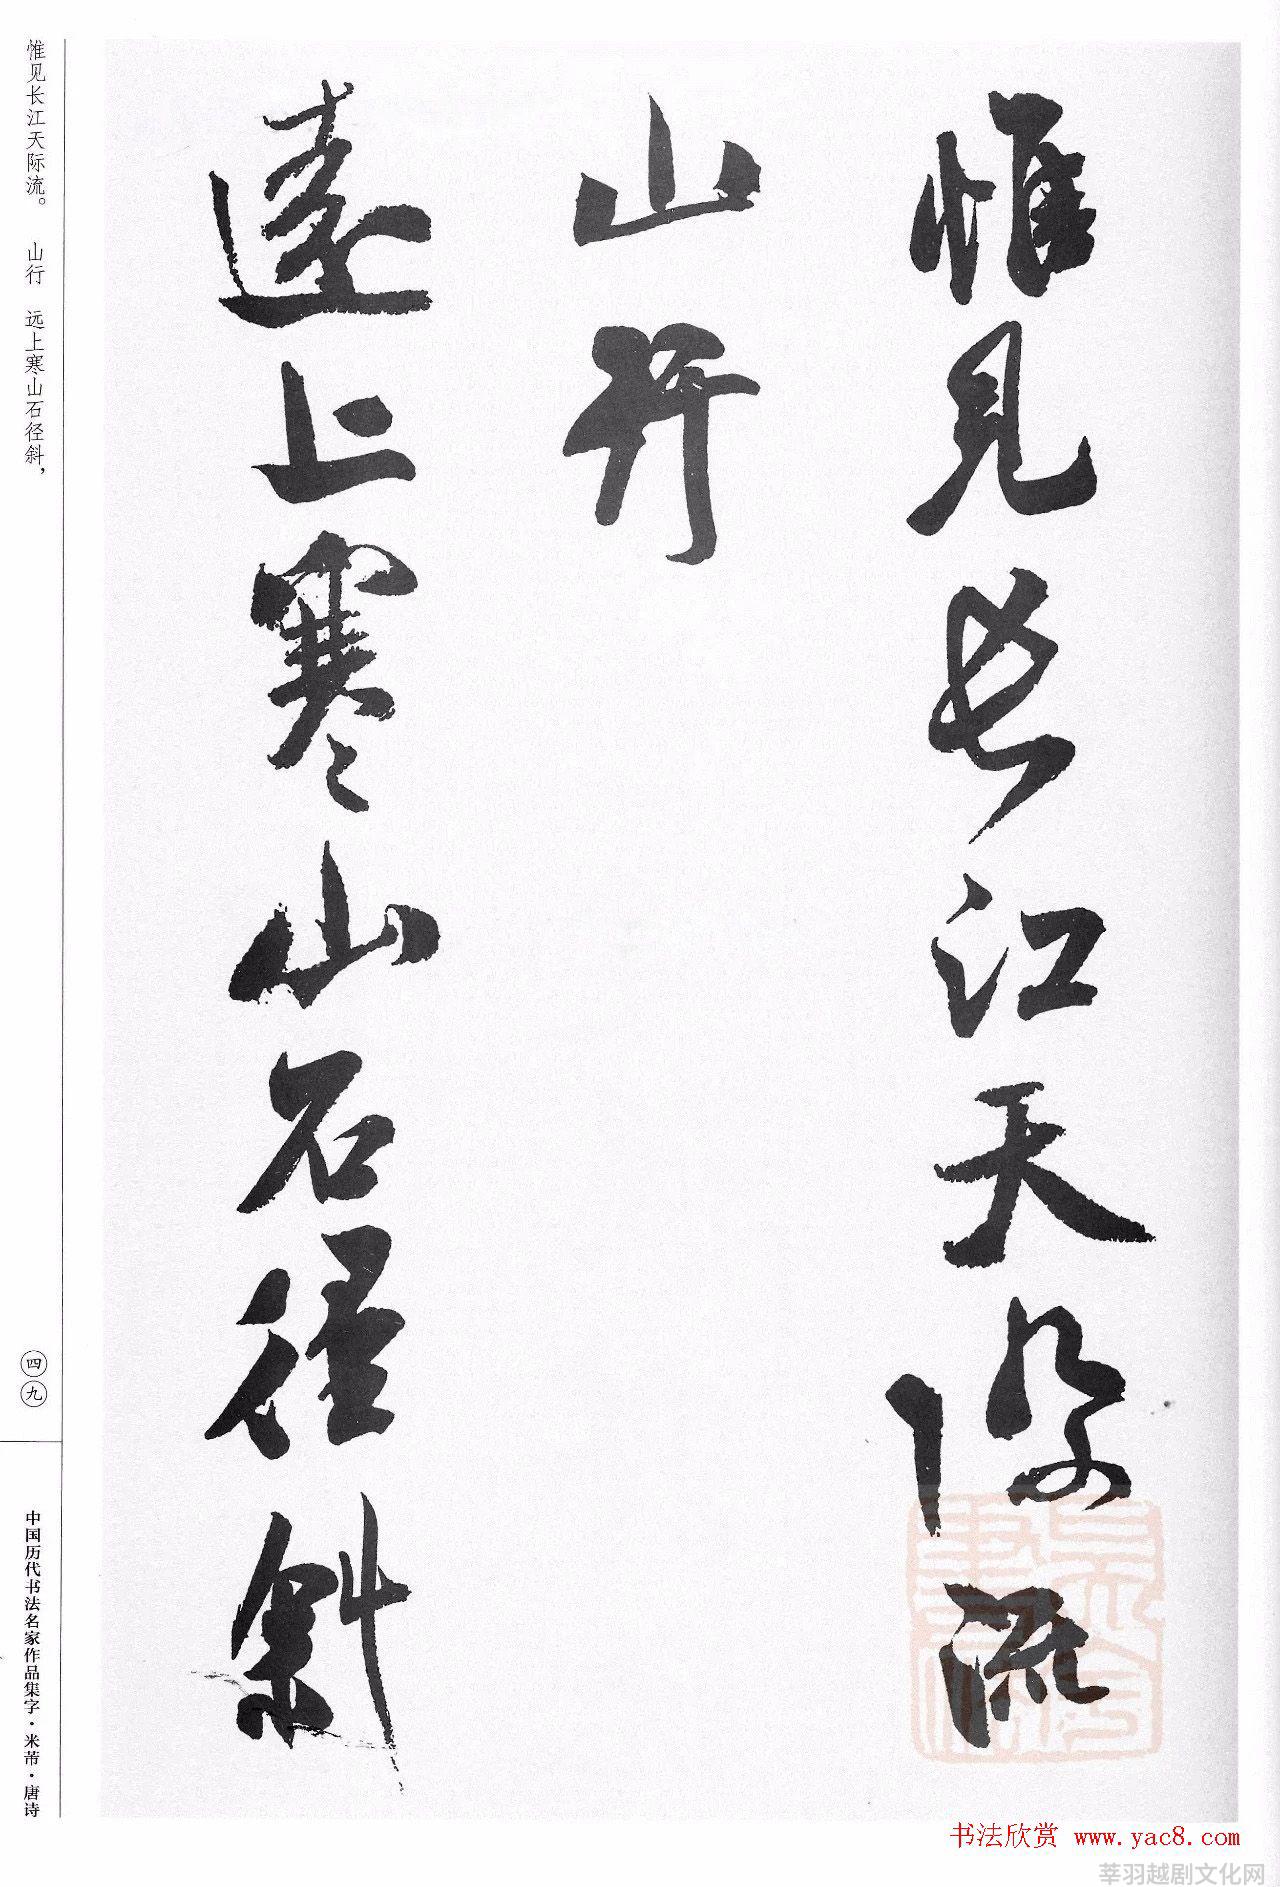 惟見長江天際流
山行
遠上寒山石徑斜
惟见长江天际流。 山行 远上寒山石径斜，
四九
中国历代书法名家作品集字·米芾·唐诗
书法欣赏 www.yac8.com
莘羽越剧文化网